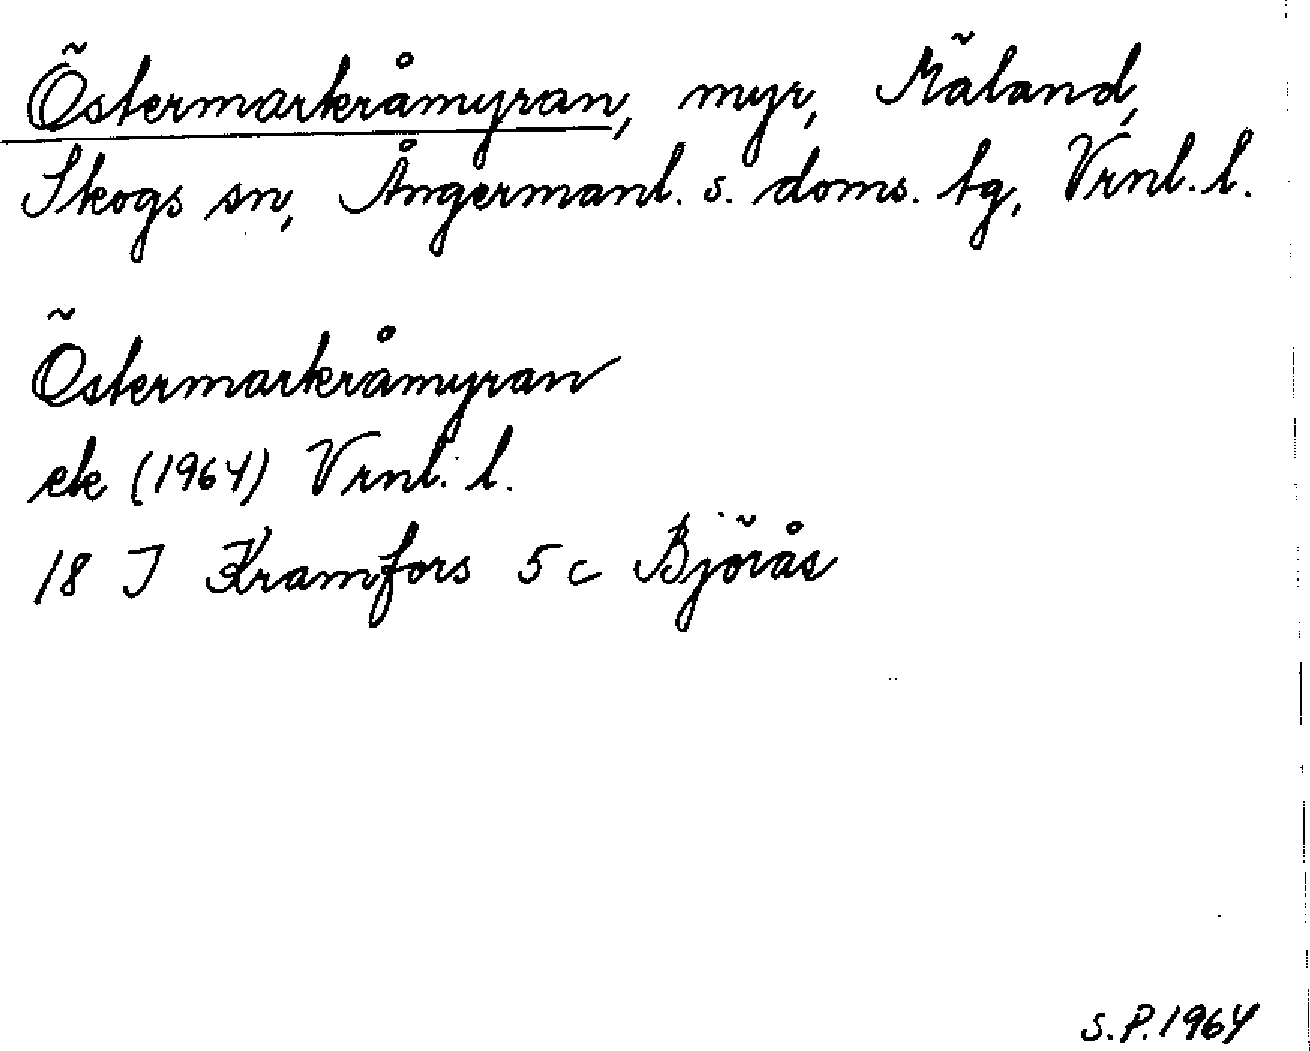 Östermarkråmyran, myr, Mäland,
Skogs sn, Ångermanl. s. doms. tg, Vrnl. l.
Östermarkråmyran
ek (1964) Vrnl. l.
18 I Kramfors 5 c Björås
S.P. 1964